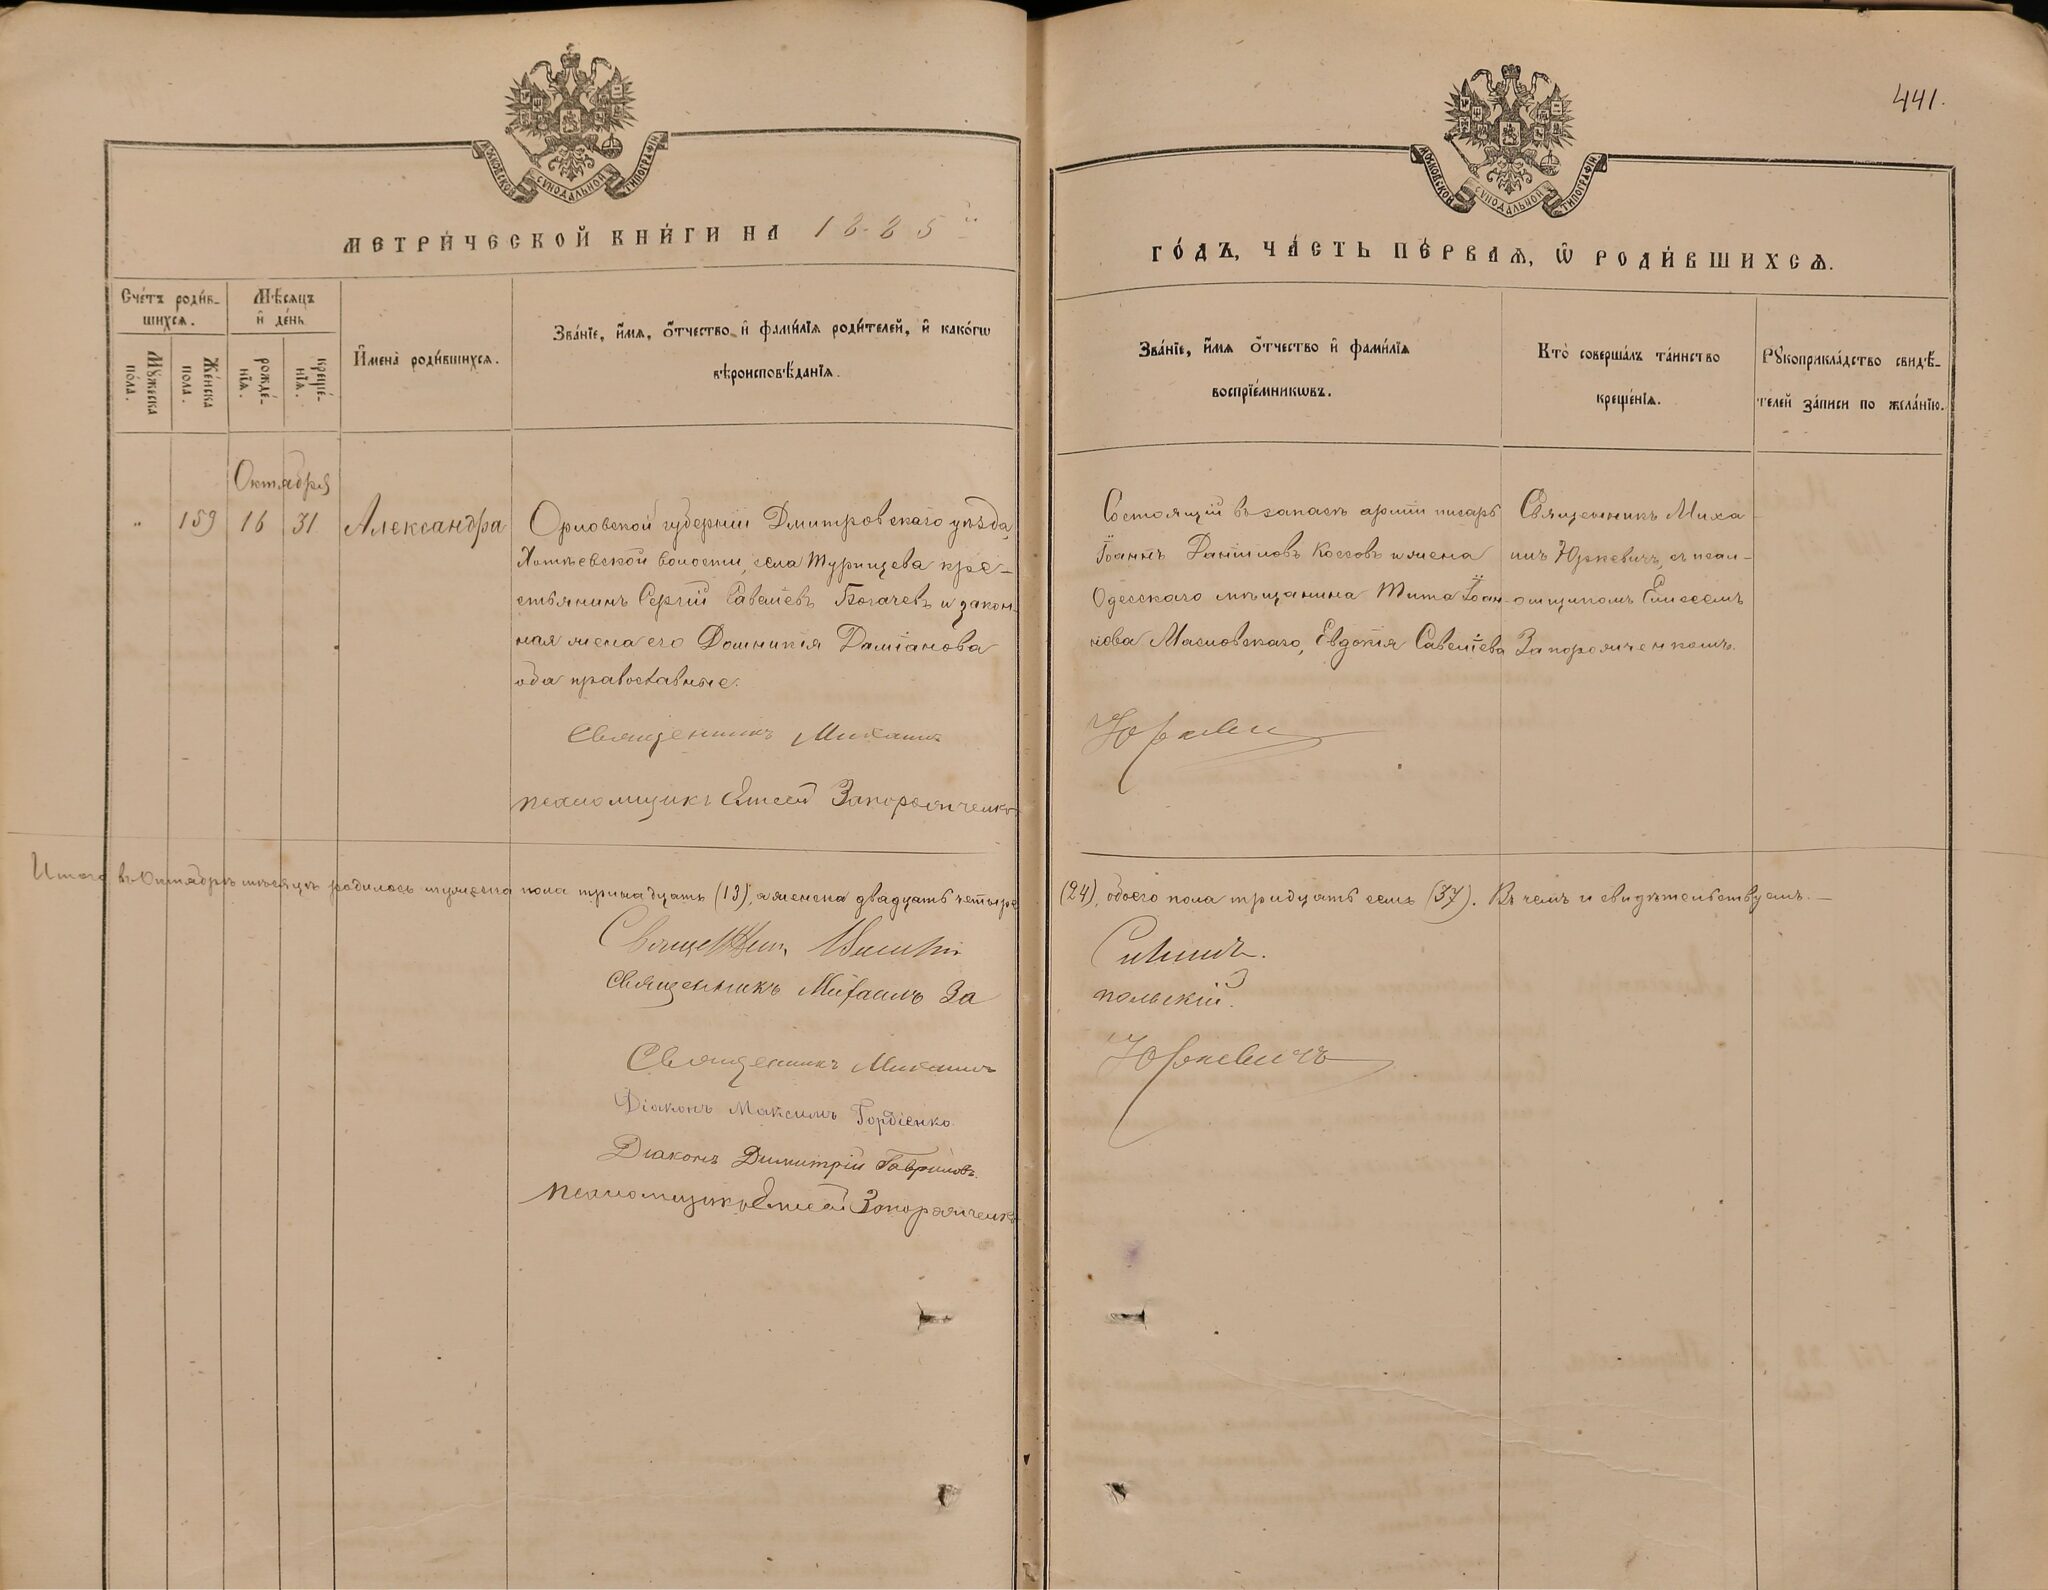 441.
МОСКОВСКОЙ СѴНОДАЛЬНОЙ ТИПОГРАФІИ
МОСКОВСКОЙ СѴНОДАЛЬНОЙ ТИПОГРАФІИ
МЕТРИ́ЧЕСКОЙ КНИ́ГИ НА 1885й
ГО́ДЪ, ЧА́СТЬ ПЕ́РВАѦ, Ѡ҆ РОДИ́ВШИХСѦ.
Сче́тъ роди́в-
шихсѧ.
Мꙋ́жеска по́ла.
Же́нска по́ла.
Мѣ́сѧцъ
и҆ де́нь.
рожде́-нїѧ.
креще́-нїѧ.
И҆мена̀ роди́вшихсѧ.
Зва́нїе, и҆́мѧ, ѻ҆́тчество и҆ фами́лїѧ роди́телей, и҆ како́гѡ
вѣроисповѣ́данїѧ.
Зва́нїе, и҆́мѧ ѻ҆́тчество и҆ фами́лїѧ
воспрїе́мникѡвъ.
Кто̀ соверша́лъ та́инство
креще́нїѧ.
Рꙋкоприкла́дство свидѣ́-
телей за́писи по жела́нїю.
Октября
" 159 16 31 Александра
Орловской губерніи Дмитровскаго уѣзда,
Хотѣевской волости, села Турищева кре-
стьянинъ Сергій Савеліевъ Богачевъ и закон-
ная жена его Домникія Даміанова
оба православные.
Священникъ Михаилъ
псаломщикъ Елисей Запорожченко
Состоящій въ запасѣ арміи писарь
Іоаннъ Даніиловъ Косовъ и жена
Одесскаго мѣщанина Тита Іоан-
нова Масловскаго, Евдокія Савеліева
Юркеви
Священникъ Миха-
илъ Юркевичъ, съ псал-
омщикомъ Елисеемъ
Запорожченкомъ.
Итого въ Октябрѣ мѣсяцѣ родилось мужеска пола тринадцать (13), а женска двадцать четыре (24), обоего пола тридцать семь (37). Въ чемъ и свидѣтельствуемъ.—
Священникъ
Священникъ Михаилъ За
польскій.
Священникъ Михаилъ
Юркевичъ
Діаконъ Максимъ Гордіенко.
Діаконъ Димитрій Гавриловъ.
псаломщикъ Елисей Запорожченко